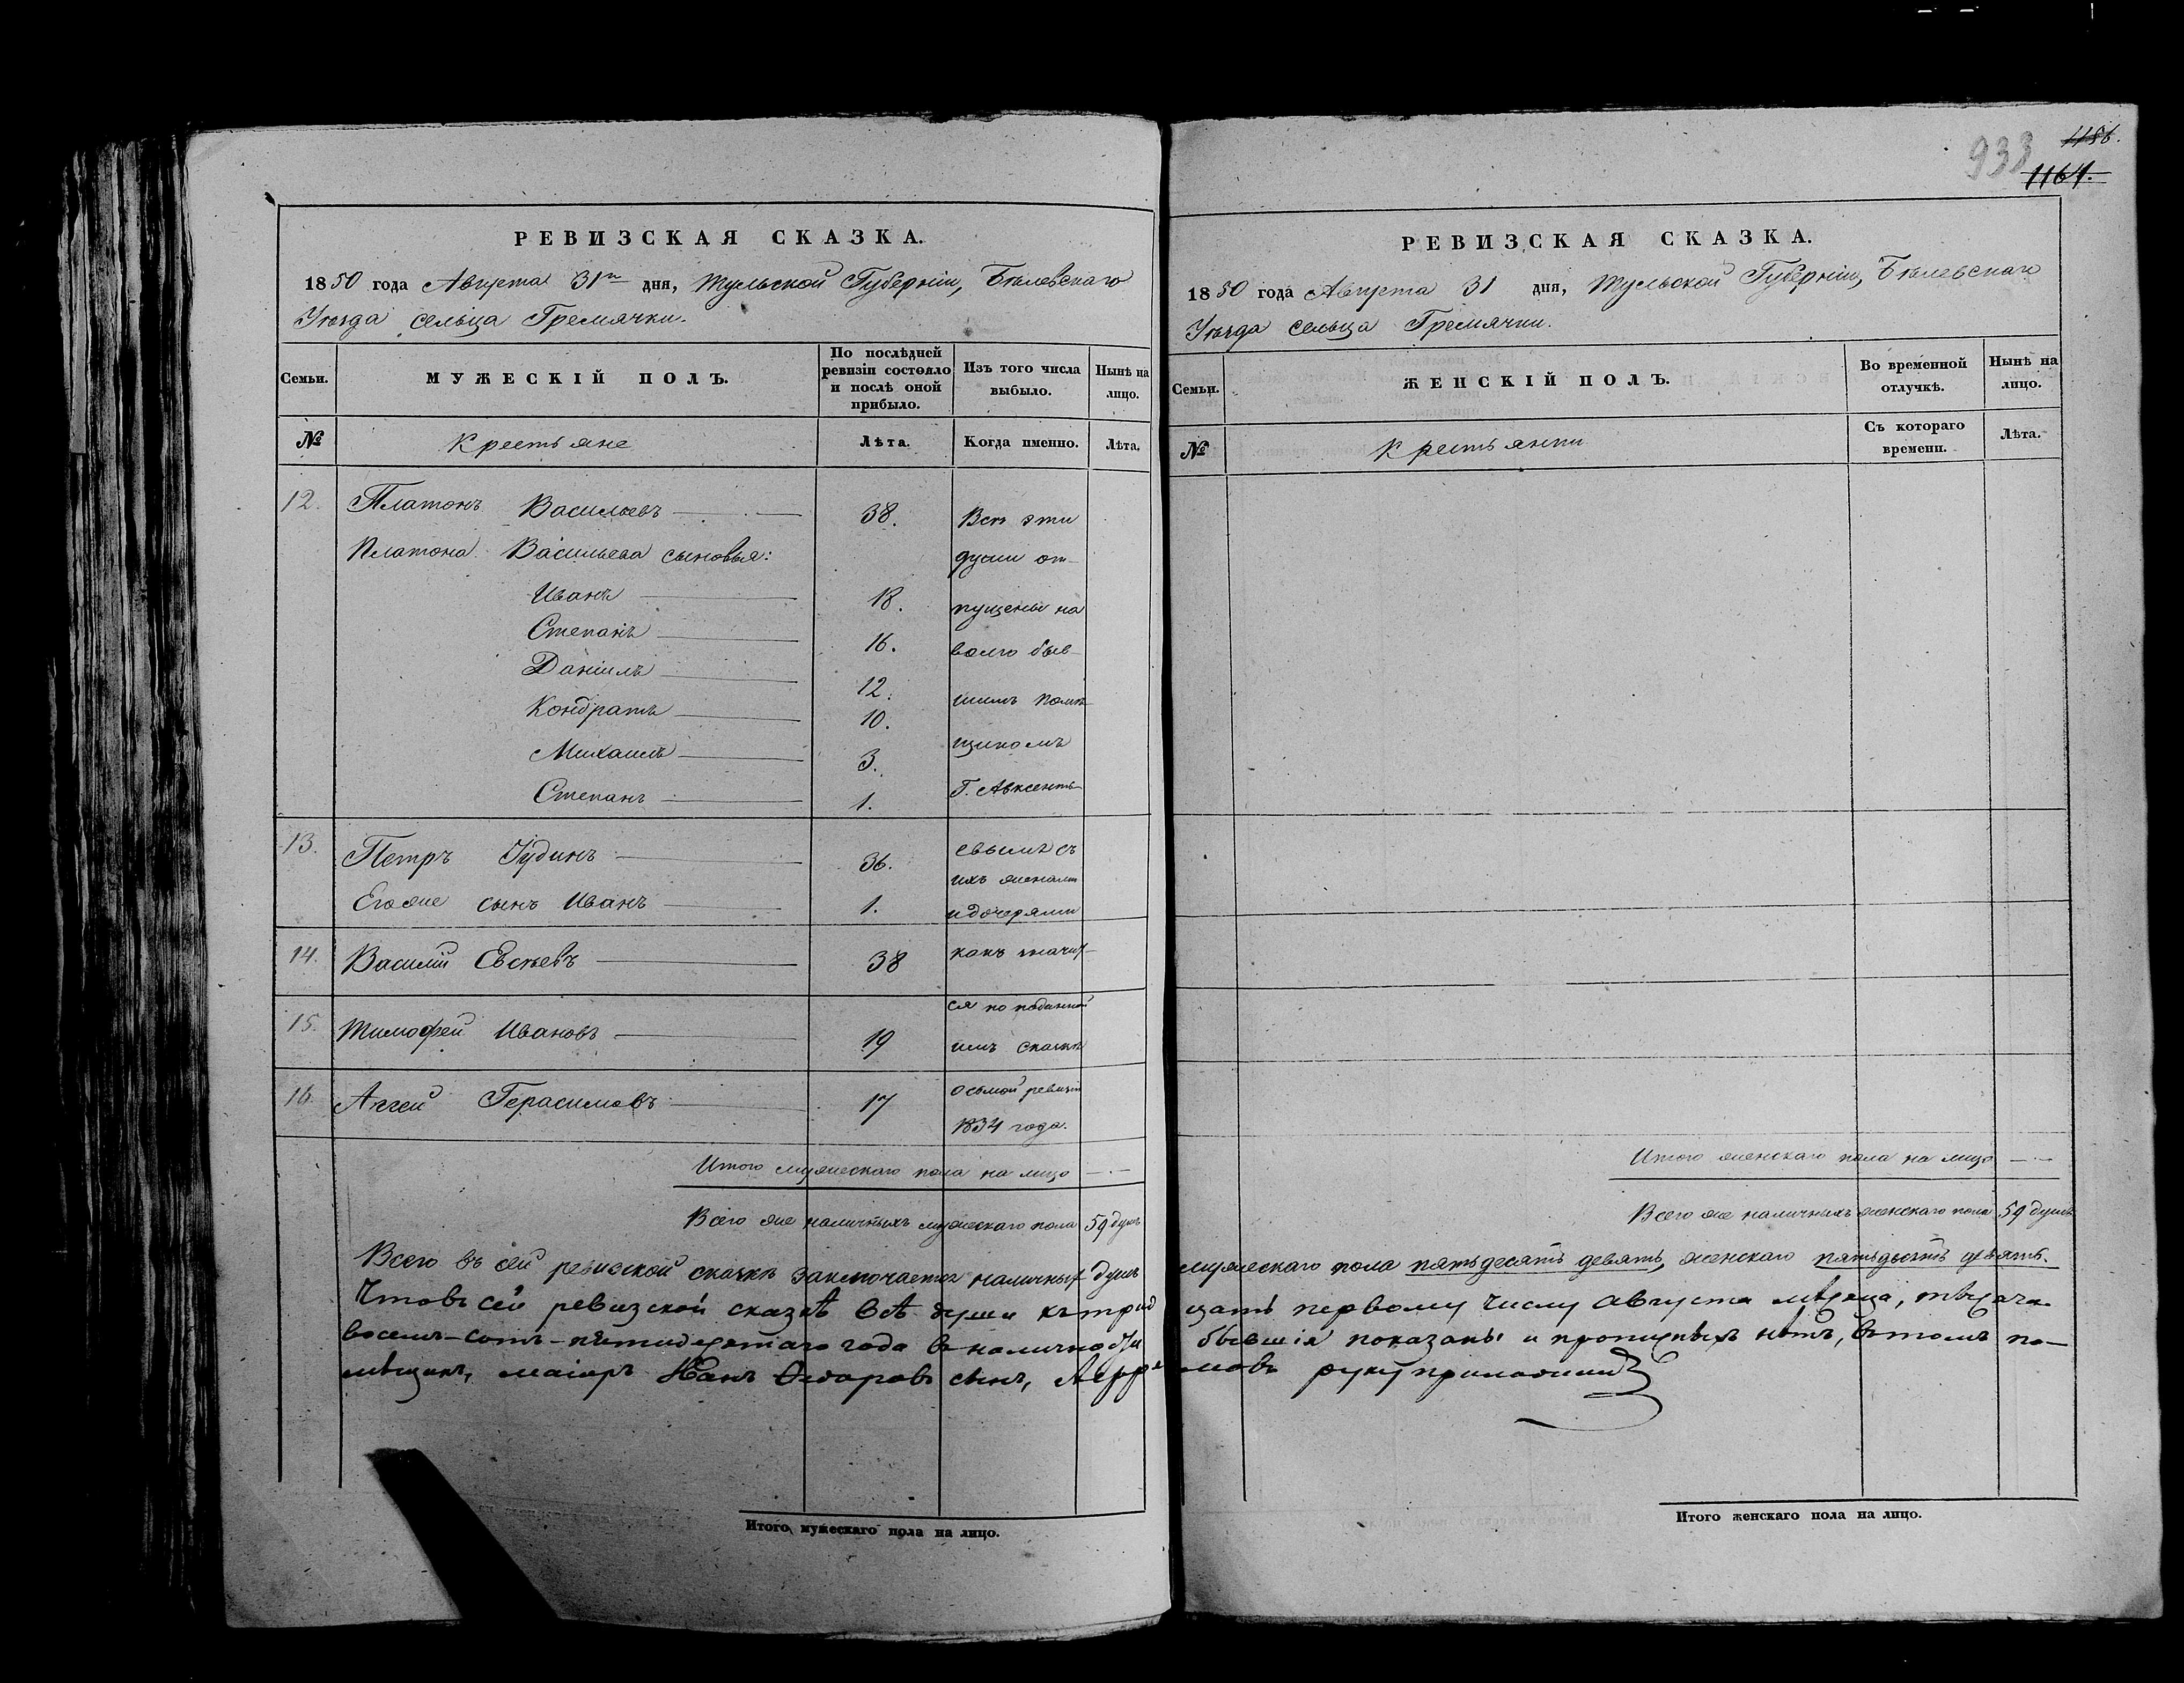 1186.
933
1164.
РЕВИЗСКАЯ СКАЗКА.
1850 года Августа 31го дня, Тульской Губерніи, Бѣлевскаго
Уѣзда сельца Гремячки.
Семьи.
МУЖЕСКІЙ ПОЛЪ.
По послѣдней ревизіи состояло и послѣ оной прибыло.
Изъ того числа выбыло.
Нынѣ на лицо.
№
Крестьяне
Лѣта.
Когда именно.
Лѣта.
12. Платонъ Васильевъ 38. Всѣ эти
Платона Васильева сыновья: души от-
Иванъ 18. пущены на
Степанъ 16. волю быв-
Даніилъ 12. шимъ помѣ-
Кондратъ 10.
Михаилъ 3. щикомъ
Степанъ 1. Г. Авксенть-
13. Петръ Іудинъ 36. евымъ съ
ихъ женами
Егоже сынъ Иванъ 1. и дочерями
14. Василій Евсѣевъ 38 какъ значит-
ся по поданной
15. Тимофей Ивановъ 19 имъ сказкѣ
осьмой ревизіи
16. Аггей Герасимовъ 17
1834 года.
Итого мужескаго пола на лицо —
Всего же наличныхъ мужескаго пола 59 душъ
РЕВИЗСКАЯ СКАЗКА.
1850 года Августа 31 дня, Тульской Губерніи, Бѣлевскаго
Уѣзда сельца Гремячки.
Семьи.
ЖЕНСКІЙ ПОЛЪ.
Во временной отлучкѣ.
Нынѣ на лицо.
№
Крестьянки
Съ котораго времени.
Лѣта.
Итого женскаго пола на лицо —
Всего же наличныхъ женскаго пола 59 душъ
Всего въ сей ревизской сказкѣ заключается наличныхъ душъ мужескаго пола пятьдесятъ девять, женскаго пятьдесятъ девять.
Что въ сей ревизской сказкѣ всѣ души къ тридцать первому числу августа мѣсяца, тысяча
восемь-сотъ-пятидесятаго года въ наличности бывшія показаны и прописныхъ нѣтъ, въ томъ по-
мѣщикъ, маіоръ Иванъ Ѳедоровъ сынъ, руку приложилъ
Итого мужескаго пола на лицо.
Итого женскаго пола на лицо.